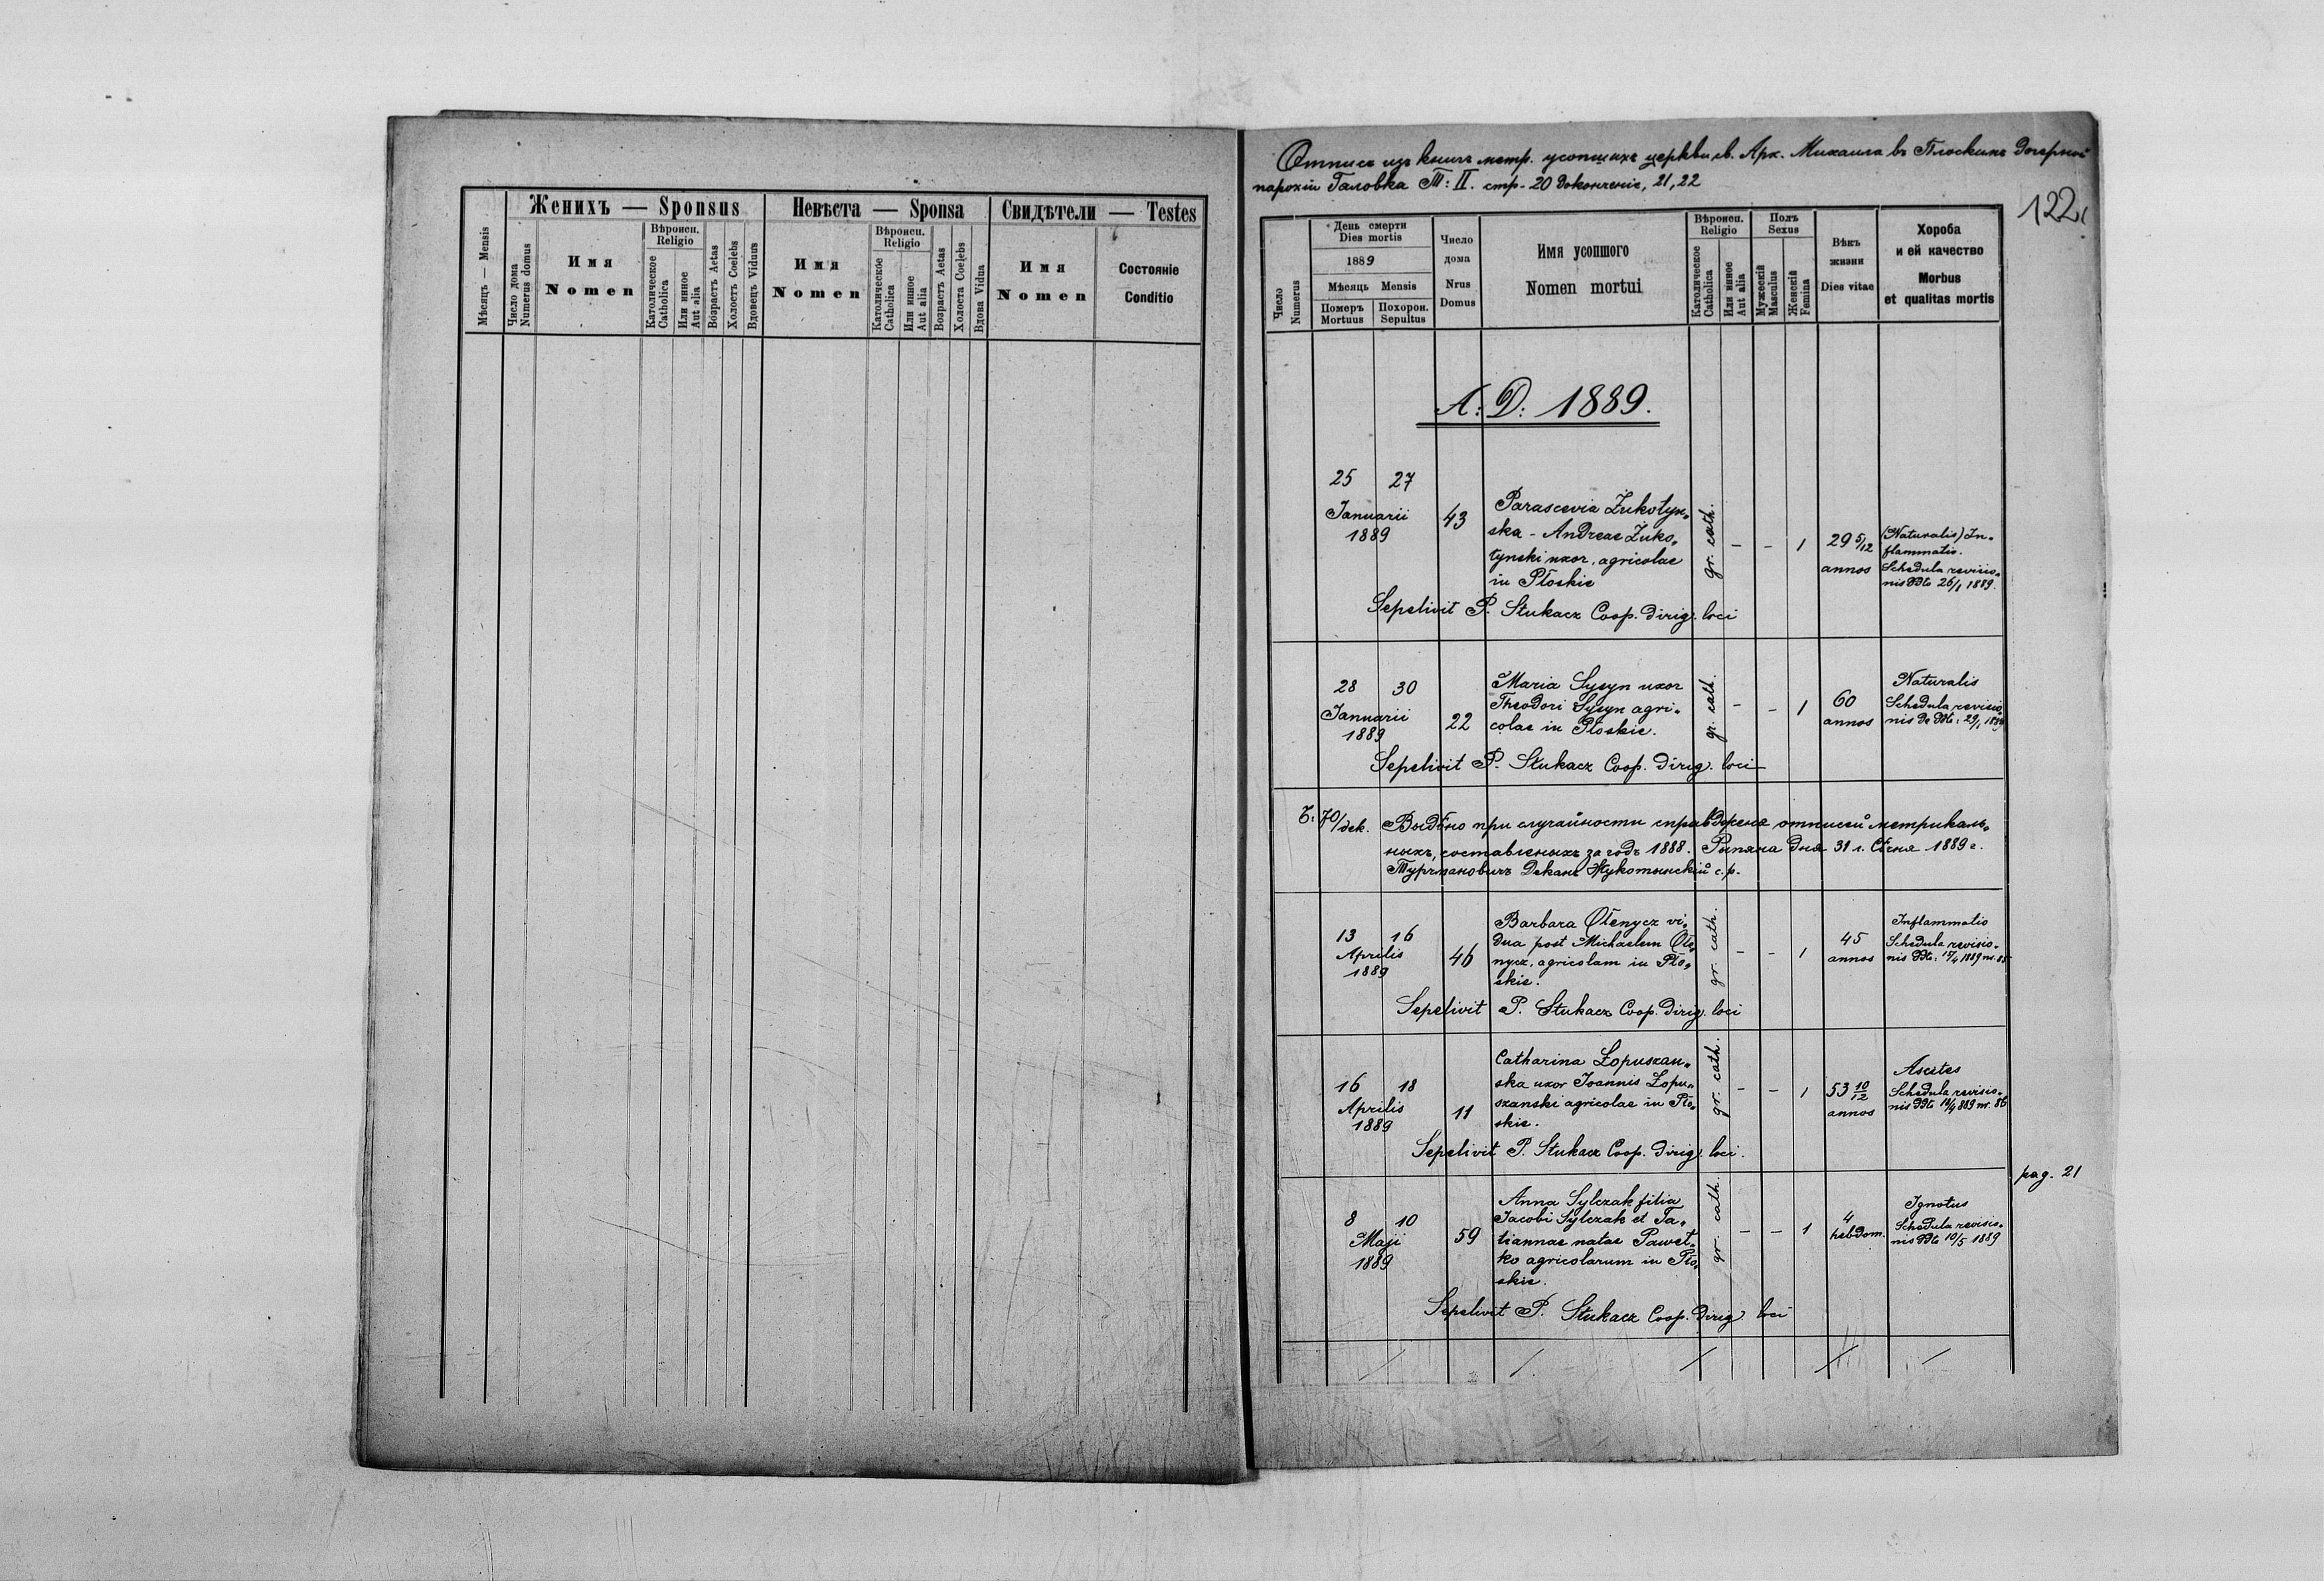 Женихъ — Sponsus
Невѣста — Sponsa
Свидѣтели — Testes
Мѣсяцъ — Mensis
Число дома
Numerus domus
Имя
Nomen
Вѣроисп.
Religio
Католическое
Catholica
Или инное
Aut alia
Возрастъ Aetas
Холостъ Coelebs
Вдовецъ Viduus
Имя
Nomen
Вѣроисп.
Religio
Католическое
Catholica
Или инное
Aut alia
Возрастъ Aetas
Холоста Coelebs
Вдова Vidua
Имя
Nomen
Состояніе
Conditio
Отпись изъ книгъ метр. усопшихъ церкви св. Арх. Михаила въ Плоскимъ дочерной
парохіи Галовка Т: II. стр. 20 доконченіе, 21, 22
122
Число
Numerus
День смерти
Dies mortis
1889
Мѣсяць Mensis
Померъ
Mortuus
Похорон.
Sepultus
Число
дома
Nrus
Domus
Имя усопшого
Nomen mortui
Вѣроисп.
Religio
Католическое
Catholica
Или инное
Aut alia
Полъ
Sexus
Мужескій
Masculus
Женскій
Femina
Вѣкъ
жизни
Dies vitae
Хороба
и ей качество
Morbus
et qualitas mortis
A: D: 1889.
25 27
Januarii
1889
43
Parascevia Żukotyn„
ska - Andreae Żuko„
tynski uxor, agricolae
in Płoskie
gr. cath.
- - 1
29 5/12
annos
(Naturalis) In„
flammatio.
Schedula revisio„
nis ddto 26/1 1889.
Sepelivit P. Stukacz Coop. dirig. loci
28 30
Januarii
1889
22
Maria Sysyn uxor
Theodori Sysyn agri„
colae in Płoskie.
gr. cath.
- - 1
60
annos
Naturalis
Schedula revisio„
nis de ddto: 29/1 1889
Sepelivit P. Stukacz Coop. dirig. loci
Ч: 70/дек. Выдѣно при случайности справдженя отписей метрикаль„
ныхъ, составленыхъ за годъ 1888. Рипяна дня 31 л. Сѣчня 1889 г.
Турчмановичъ Деканъ Жукотынскій с. р.
13 16
Aprilis
1889
46
Barbara Ołenycz vi„
dua post Michaelem Ołe„
nycz, agricolam in Pło„
skie.
gr. cath.
- - 1
45
annos
Inflammatio
Schedula revisio„
nis ddto: 15/4 1889 nr. 85
Sepelivit P. Stukacz Coop. dirig. loci
16 18
Aprilis
1889
11
Catharina Łopuszan„
ska uxor Joannis Łopu„
szanski agricolae in Pło„
skie.
gr. cath.
- - 1
53 10/12
annos
Ascites
Schedula revisio„
nis ddto 18/4 889 nr. 86
Sepelivit P. Stukacz Coop. dirig. loci.
pag. 21
8 10
Maji
1889
59
Anna Sylczak filia
Jacobi Sylczak et Ta„
tiannae natae Paweł„
ko agricolarum in Pło„
skie.
gr. cath.
- - 1
4
hebdom.
Ignotus
Schedula revisio„
nis ddto 10/5 1889
Sepelivit P. Stukacz Coop. dirig. loci